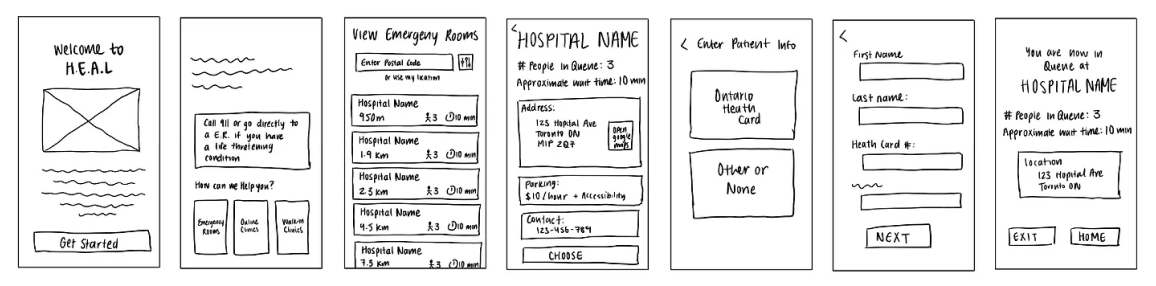 Welcome to
H.E.A.L
Get Started
Call 911 or go directly to
a E.R. if you have
a life threatening
condition
How can we Help you?
Emergency
Rooms
Online
Clinics
Walk-in
Clinics
View Emergeny Rooms
Enter Postal Code
or use my location
Hospital Name
950m 3 10 min
Hospital Name
1.9 km 3 10 min
Hospital Name
2.3 km 3 10 min
Hospital Name
4.5 km 3 10 min
Hospital Name
7.3 km 3 10 min
<
HOSPITAL NAME
# People in Queue: 3
Approximate wait time: 10 min
Address:
123 Hopital Ave
Toronto ON
M1P 2Q7
Open
google
maps
Parking:
$10/hour + Accessibility
Contact:
123-456-789
CHOOSE
< Enter Patient Info
Ontario
Heath
Card
Other or
None
<
First Name
Last name:
Heath Card #:
NEXT
You are now in
Queue at
HOSPITAL NAME
# People in Queue: 3
Approximate wait time: 10 min
location
123 Hopital Ave
Toronto ON
EXIT
HOME